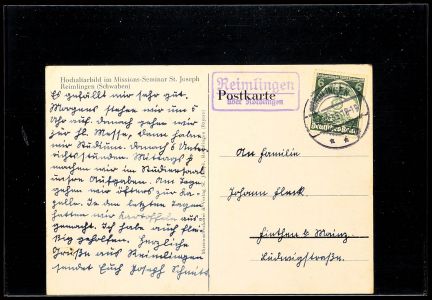 Hochaltarbild im Missions-Seminar St. Joseph
Reimlingen (Schwaben)
Es gefällt mir sehr gut.
Morgens stehen wir um 5
Uhr auf. Danach gehen wir
zur hl. Messe, dann haben
wir Studium. Danach 5 Unter-
richtsstunden. Mittags
machen wir im Studiersaal
unsre Aufgaben. Am Tage
gehen wir öfters zur Ka-
pelle. In den letzten Tagen
hatten wir Kartoffeln aus-
gemacht. Ich habe auch flei-
ßig geholfen. Herzliche
Grüße aus Reimlingen
sendet Euch Joseph Schmitt
Reimlingen
über Nördlingen
Postkarte
Deutsches Reich
An Familie
Johann Fleck
Finthen b. Mainz
Ludwigstraße.